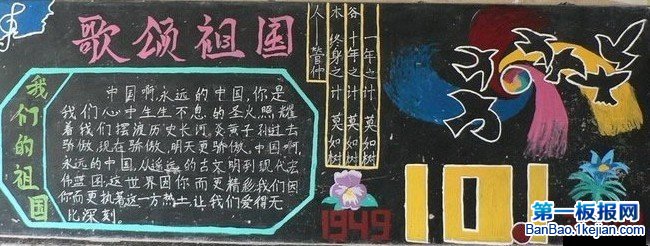 歌颂祖国
我们的祖国
中国啊,永远的中国,你是
我们心中生生不息的圣火.照耀
着我们摆渡历史长河,炎黄子孙过去
骄傲,现在骄傲,明天更骄傲.中国啊,
永远的中国,从遥远的古文明到现代宏
伟蓝图,这世界因你而更精彩我们因
你而更执着这一方热土让我们爱得无
比深刻.
一年之计 莫如树
谷 十年之计 莫如树
木 终身之计 莫如树
人——管仲
1949
101
第一板报网
BanBao.1kejian.com